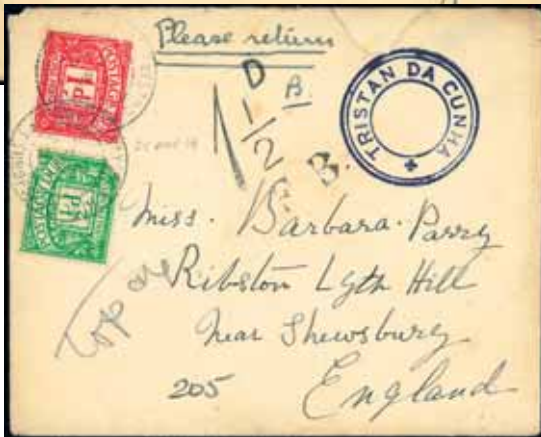 Please return
D
1 1/2
B.
G. B.
TRISTAN DA CUNHA
POSTAGE DUE
1
POSTAGE DUE
Miss. Barbara. Parry
Ribston Lyth Hill
Near Shewsbury
205
England
Top